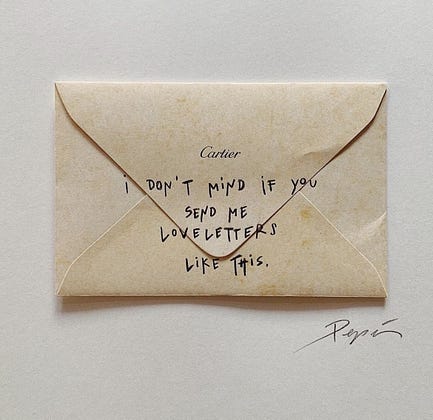 Cartier
i DON'T MiND iF YOU
SEND ME
LOVELETTERS
LiKE THiS.